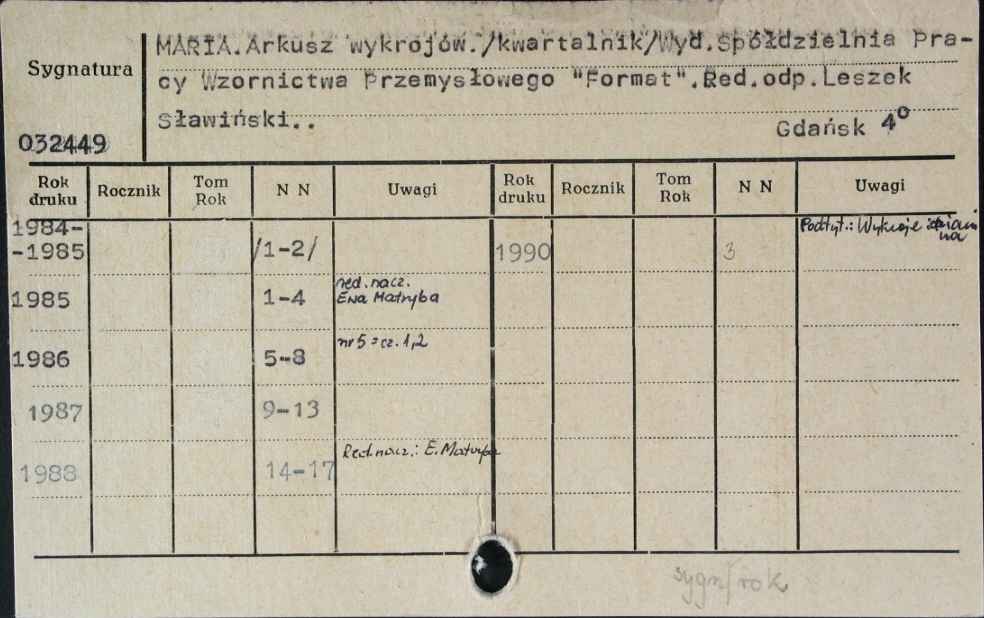 MARIA.Arkusz wykrojów./kwartalnik/Wyd.Spółdzielnia Pra-
Sygnatura
cy Wzornictwa Przemysłowego "Format".Red.odp.Leszek
Sławiński..
Gdańsk 4°
032449
Rok druku Rocznik Tom Rok N N Uwagi Rok druku Rocznik Tom Rok N N Uwagi
1984-
-1985 /1-2/ 1990 3 Podtyt.: Wykroje
1985 1-4 red. nacz.
Ewa Matryba
1986 5-8 nr 5 = cz. 1,2
1987 9-13
1988 14-17 Red. nacz.: E. Matryba
sygn/rok